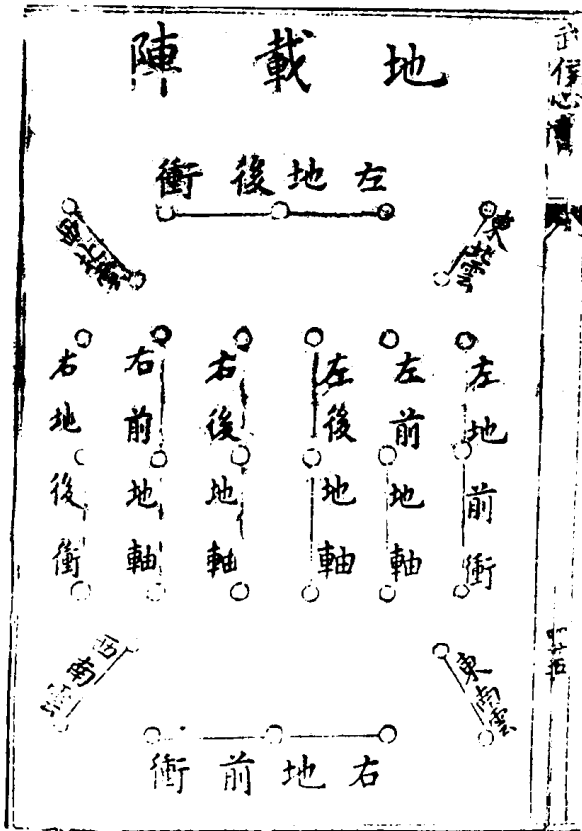 武侯心書
地載陣
左地後衝
東北雲
左地前衝
左前地軸
左後地軸
右後地軸
右前地軸
右地後衝
東南雲
西南雲
右地前衝